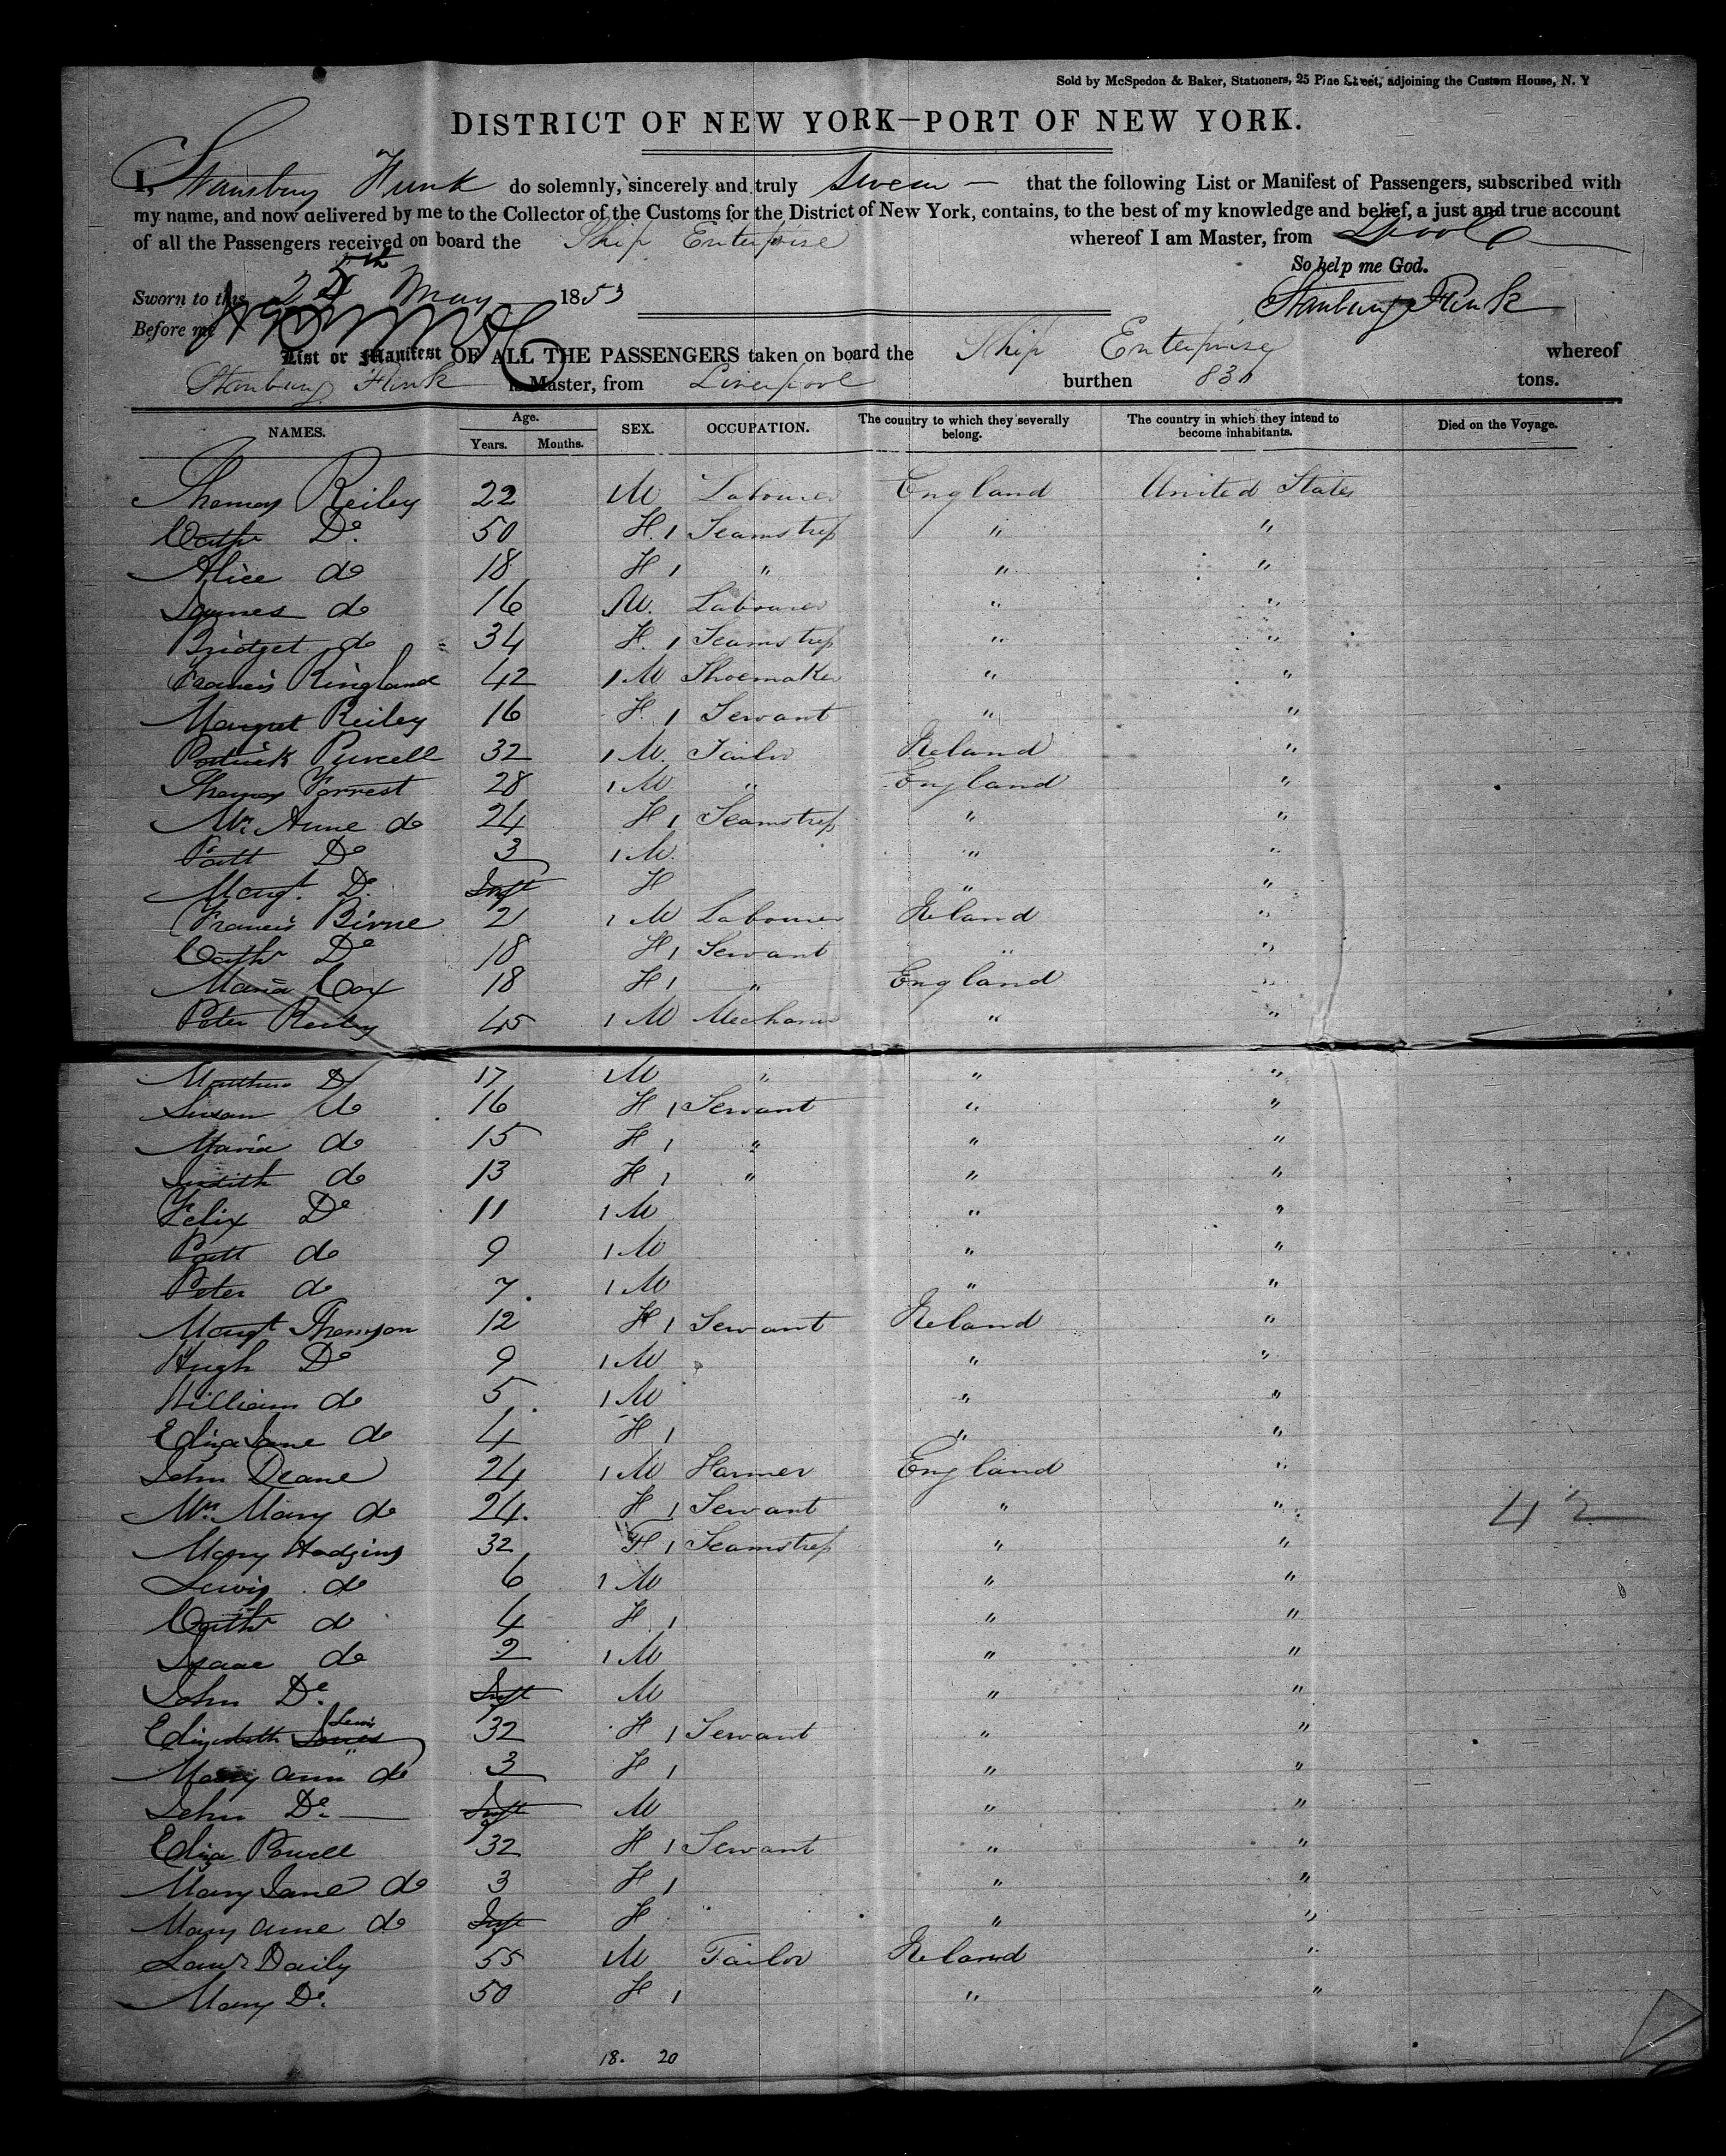 Sold by McSpedon & Baker, Stationers, 25 Pine Street, adjoining the Custom House, N. Y
DISTRICT OF NEW YORK—PORT OF NEW YORK.
I, Stansbury Funk do solemnly, sincerely and truly Swear — that the following List or Manifest of Passengers, subscribed with
my name, and now delivered by me to the Collector of the Customs for the District of New York, contains, to the best of my knowledge and belief, a just and true account
of all the Passengers received on board the Ship Enterprise whereof I am Master, from Lpool
So help me God.
Sworn to this 25th May 1853 Stanbury Funk
Before me
List or Manifest OF ALL THE PASSENGERS taken on board the Ship Enterprise whereof
Stanbury Funk is Master, from Liverpool burthen tons.
NAMES. Age. Years. Months. SEX. OCCUPATION. The country to which they severally belong. The country in which they intend to become inhabitants. Died on the Voyage.
Thomas Reiley 22 M Labourer England United States
Cathe Do. 50 F. 1 Seamstress " "
Alice do 18 F 1 " " "
James do 16 M. Labourer " "
Bridget do 34 F. 1 Seamstress " "
Francis Ringland 42 1 M Shoemaker " "
Margret Reiley 16 F. 1 Servant " "
Patrick Purcell 32 1 M. Tailor Ireland "
Thomas Forrest 28 1 M " England "
Mrs Anne do 24 F 1 Seamstress " "
Patt Do 3 1 M. " "
Margt. Do. Inft F " "
Francis Birne 21 1 M Labourer Ireland "
Cathe Do 18 F 1 Servant " "
Maria Cox 18 F 1 " England "
Peter Reiley 45 1 M Mechanic " "
Matthew Do 17 M " " "
Susan do 16 F 1 Servant " "
Maria do 15 F 1 " " "
Judith do 13 F 1 " " "
Felix Do 11 1 M " "
Patt do 9 1 M " "
Peter do 7. 1 M " "
Margt Thomson 12 F 1 Servant Ireland "
Hugh Do 9 1 M " "
William do 5. 1 M " "
Eliza Jane do 4 F 1 " "
John Deane 24 1 M Farmer England "
Mrs. Mary do 24. F 1 Servant " " 42
Mary Hodgins 32 F 1 Seamstress " "
Lewis do 6 1 M " "
Cathe do 4 F 1 " "
Isaac do 2 1 M " "
John Do. Inft M " "
Lewis
Elizabeth Jones 32 F 1 Servant " "
Mary Ann do 3 F 1 " "
John Do. Inft M " "
Eliza Powell 32 F 1 Servant " "
Mary Jane do 3 F 1 " "
Mary Anne do Inft F " "
Lawr Daily 55 M Tailor Ireland "
Mary Do. 50 F 1 " "
18. 20